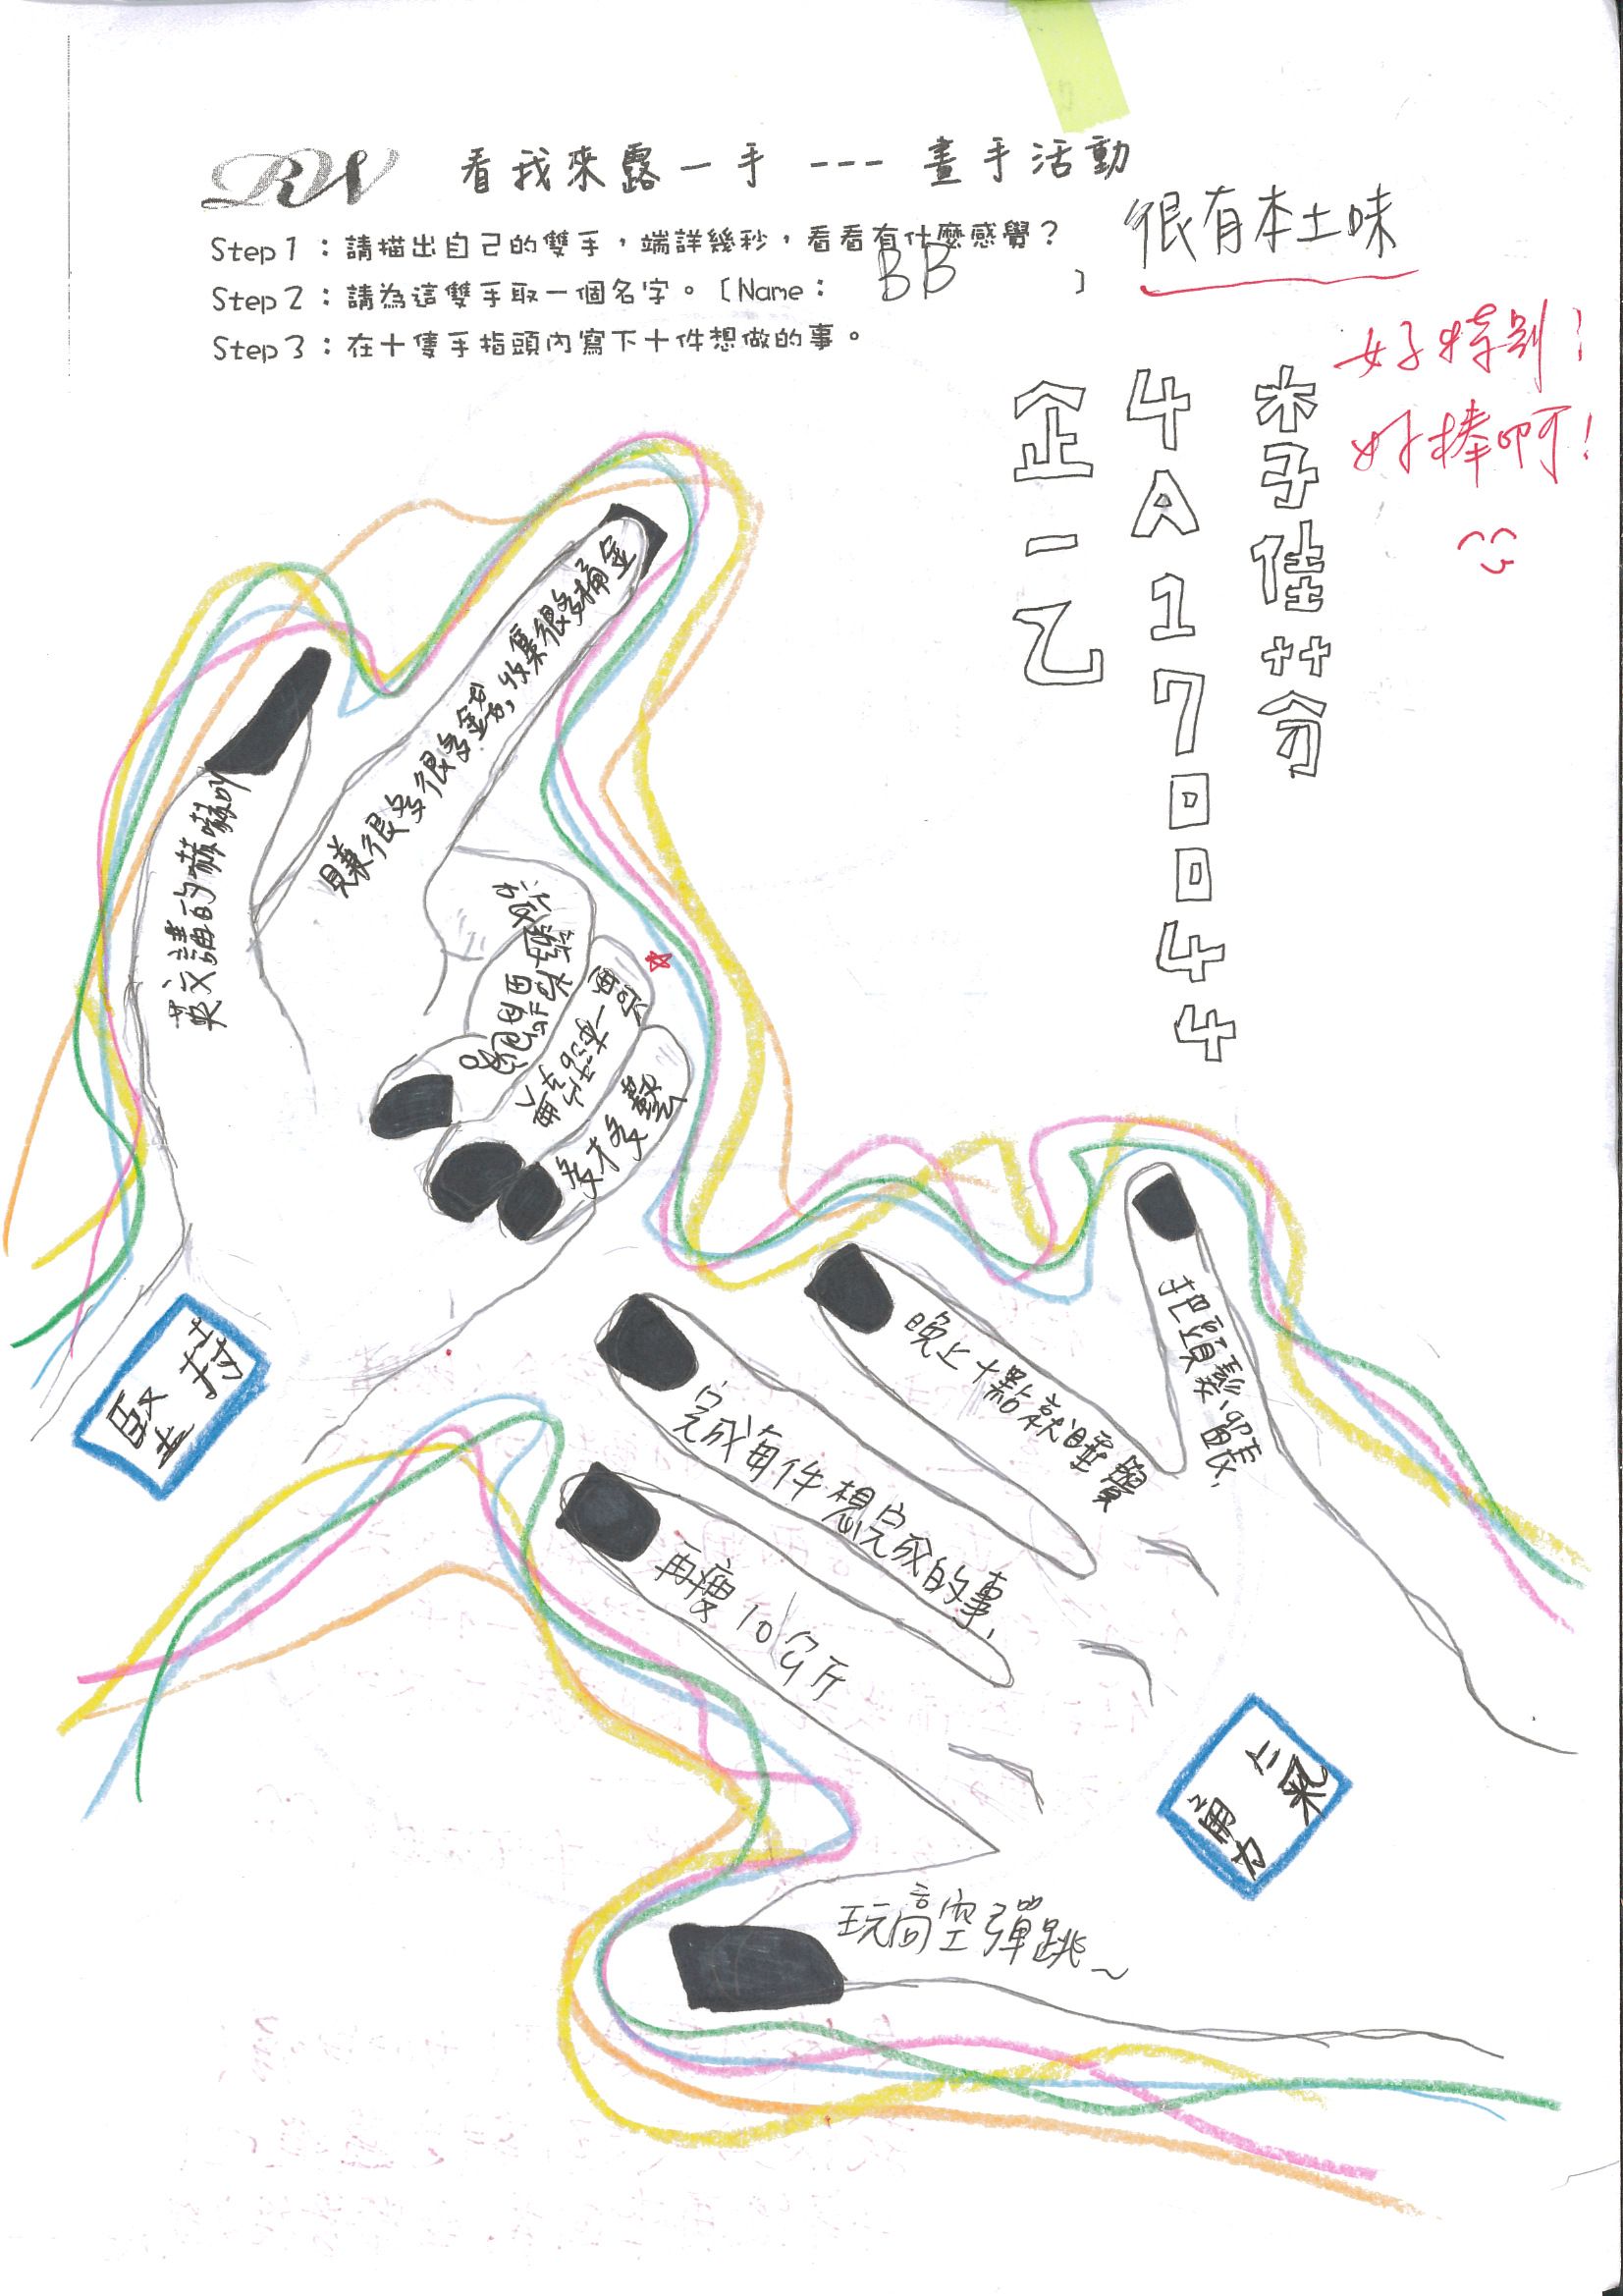 RW 看我來露一手 --- 畫手活動
Step1：請描出自己的雙手，端詳幾秒，看看有什麼感覺？
很有本土味
Step2：請為這雙手取一個名字。〔Name： BB 〕
Step3：在十隻手指頭內寫下十件想做的事。
好特別！
好棒啊！
李佳芬
4A170044
企一乙
英文講的嚇嚇叫
賺很多很多錢，收集很多桶金
多才多藝
把頭髮留長.
晚上十點就睡覺
完成每件想完成的事.
再瘦10公斤
玩高空彈跳~
堅持
勇氣